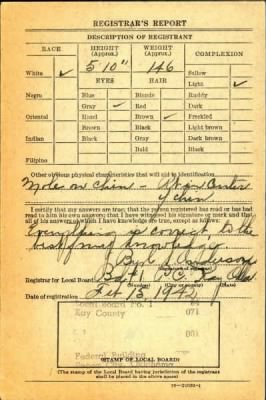 REGISTRAR'S REPORT
DESCRIPTION OF REGISTRANT
RACE HEIGHT (Approx.) WEIGHT (Approx.) COMPLEXION
5'10" 146
White ✓ Sallow
EYES HAIR Light ✓
Negro Blue Blonde Ruddy
Gray ✓ Red Dark
Oriental Hazel Brown ✓ Freckled
Brown Black Light brown
Indian Black Gray Dark brown
Bald Black
Filipino
Other obvious physical characteristics that will aid in identification
Mole on Chin - in Center
of chin
I certify that my answers are true; that the person registered has read or has had
read to him his own answers; that I have witnessed his signature or mark and that
all of his answers of which I have knowledge are true, except as follows:
Everything is correct to the
best of my knowledge.
Anderson
Registrar for Local Board 1
Date of registration Feb 13, 1942
Local Board No. 1
Kay County 071
Federal Building
Oklahoma
(STAMP OF LOCAL BOARD)
(The stamp of the Local Board having jurisdiction of the registrant
shall be placed in the above space.)